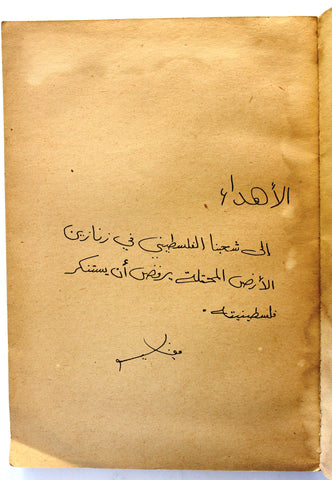 الأهداء
الى شعبنا الفلسطيني في زنازين
الأرض المحتلة يرفض أن يستنكر
فلسطينيته .